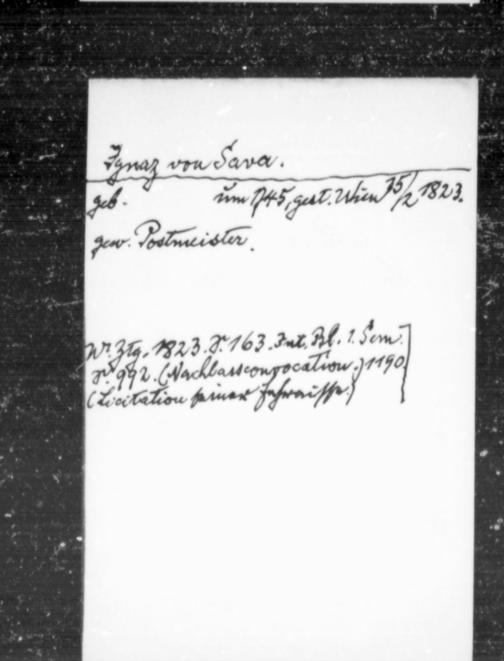 Ignaz von Sava.
geb. um 1745, gest. Wien 15/2 1823.
gew. Postmeister.
Wr. Ztg. 1823. S. 163. Int. Bl. 1. Sem.
S. 992. (Nachlassconvocation.) 1190
(Licitation seiner Fahrnisse.)